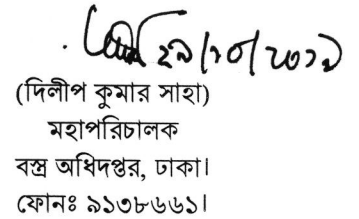 ২৯/১০/২০১৯
(দিলীপ কুমার সাহা)
মহাপরিচালক
বস্ত্র অধিদপ্তর, ঢাকা।
ফোনঃ ৯১৩৮৬৬১।